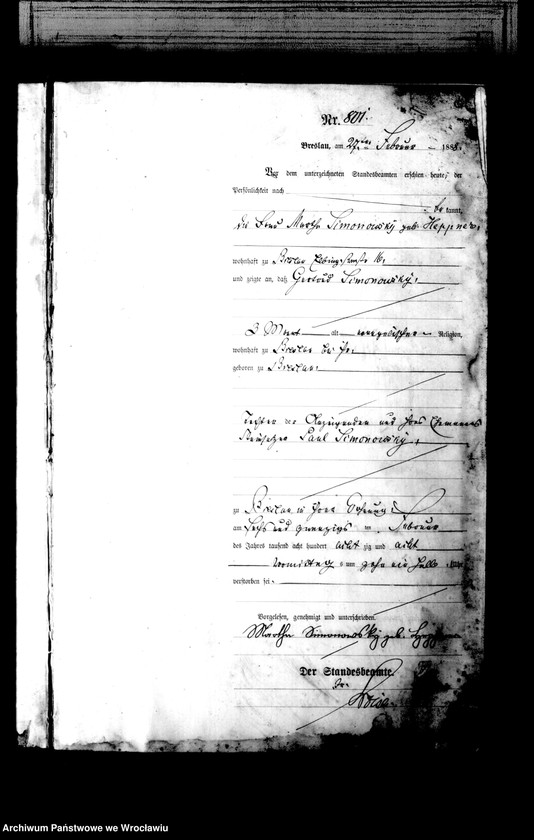 Nr. 801.
Breslau, am 27ten Februar 1888.
Vor dem unterzeichneten Standesbeamten erschien heute, der
Persönlichkeit nach
be kannt,
die Frau Martha Simonowsky geb. Heppner,
wohnhaft zu Breslau 16,
und zeigte an, daß Gertrud Simonowsky,
3 Monat alt, evangelischer Religion,
wohnhaft zu Breslau bei ihr
geboren zu Breslau,
Tochter der Anzeigenden und ihres Ehemannes
Paul Simonowsky,
zu Breslau in ihrer Wohnung
am sechs und zwanzigsten Februar
des Jahres tausend acht hundert acht zig und acht
Vormittag um zehn ein halb Uhr
verstorben sei.
Vorgelesen, genehmigt und unterschrieben.
Martha Simonowsky geb. Heppner
Der Standesbeamte.
Archiwum Państwowe we Wrocławiu